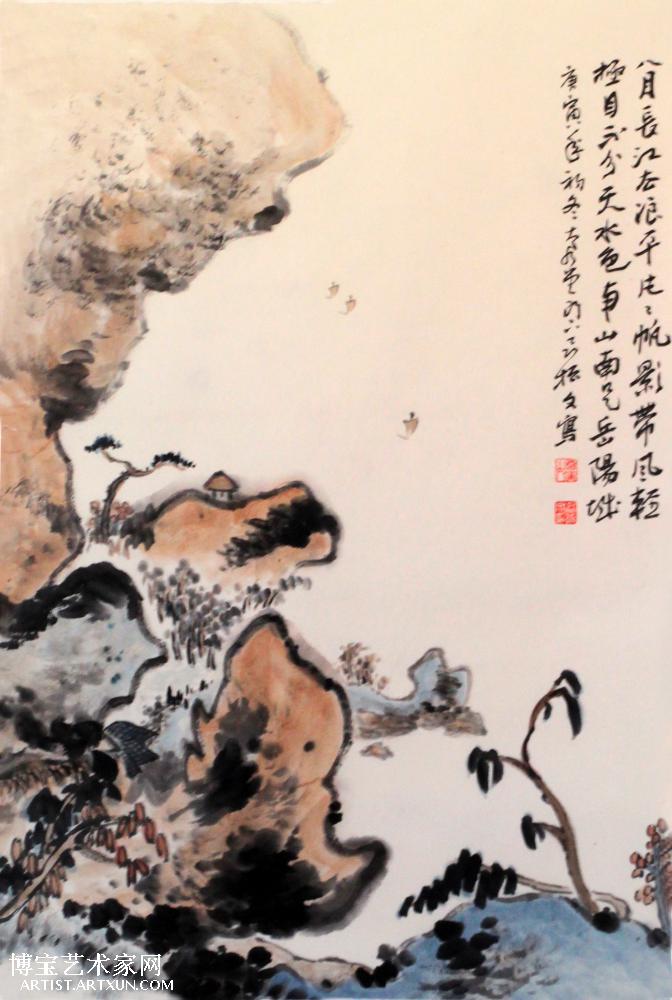 八月長江去浪平片〻帆影帶風輕
極目不分天水色南山南是岳陽城
庚寅年初冬
振文寫
博宝艺术家网
ARTIST.ARTXUN.COM